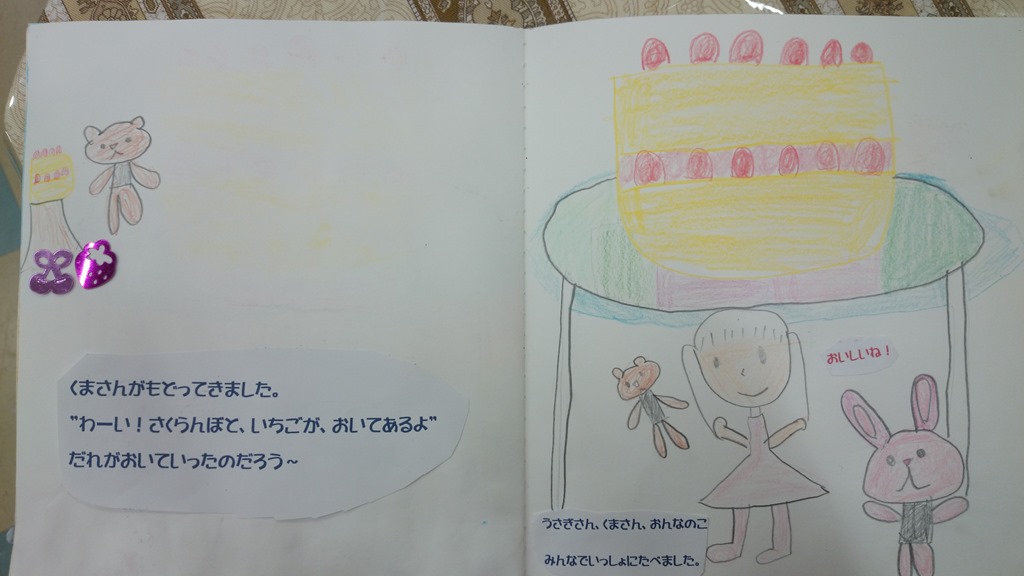 くまさんがもどってきました。
"わーい！さくらんぼと、いちごが、おいてあるよ"
だれがおいていったのだろう～
おいしいね！
うさぎさん、くまさん、おんなのこ
みんなでいっしょにたべました。